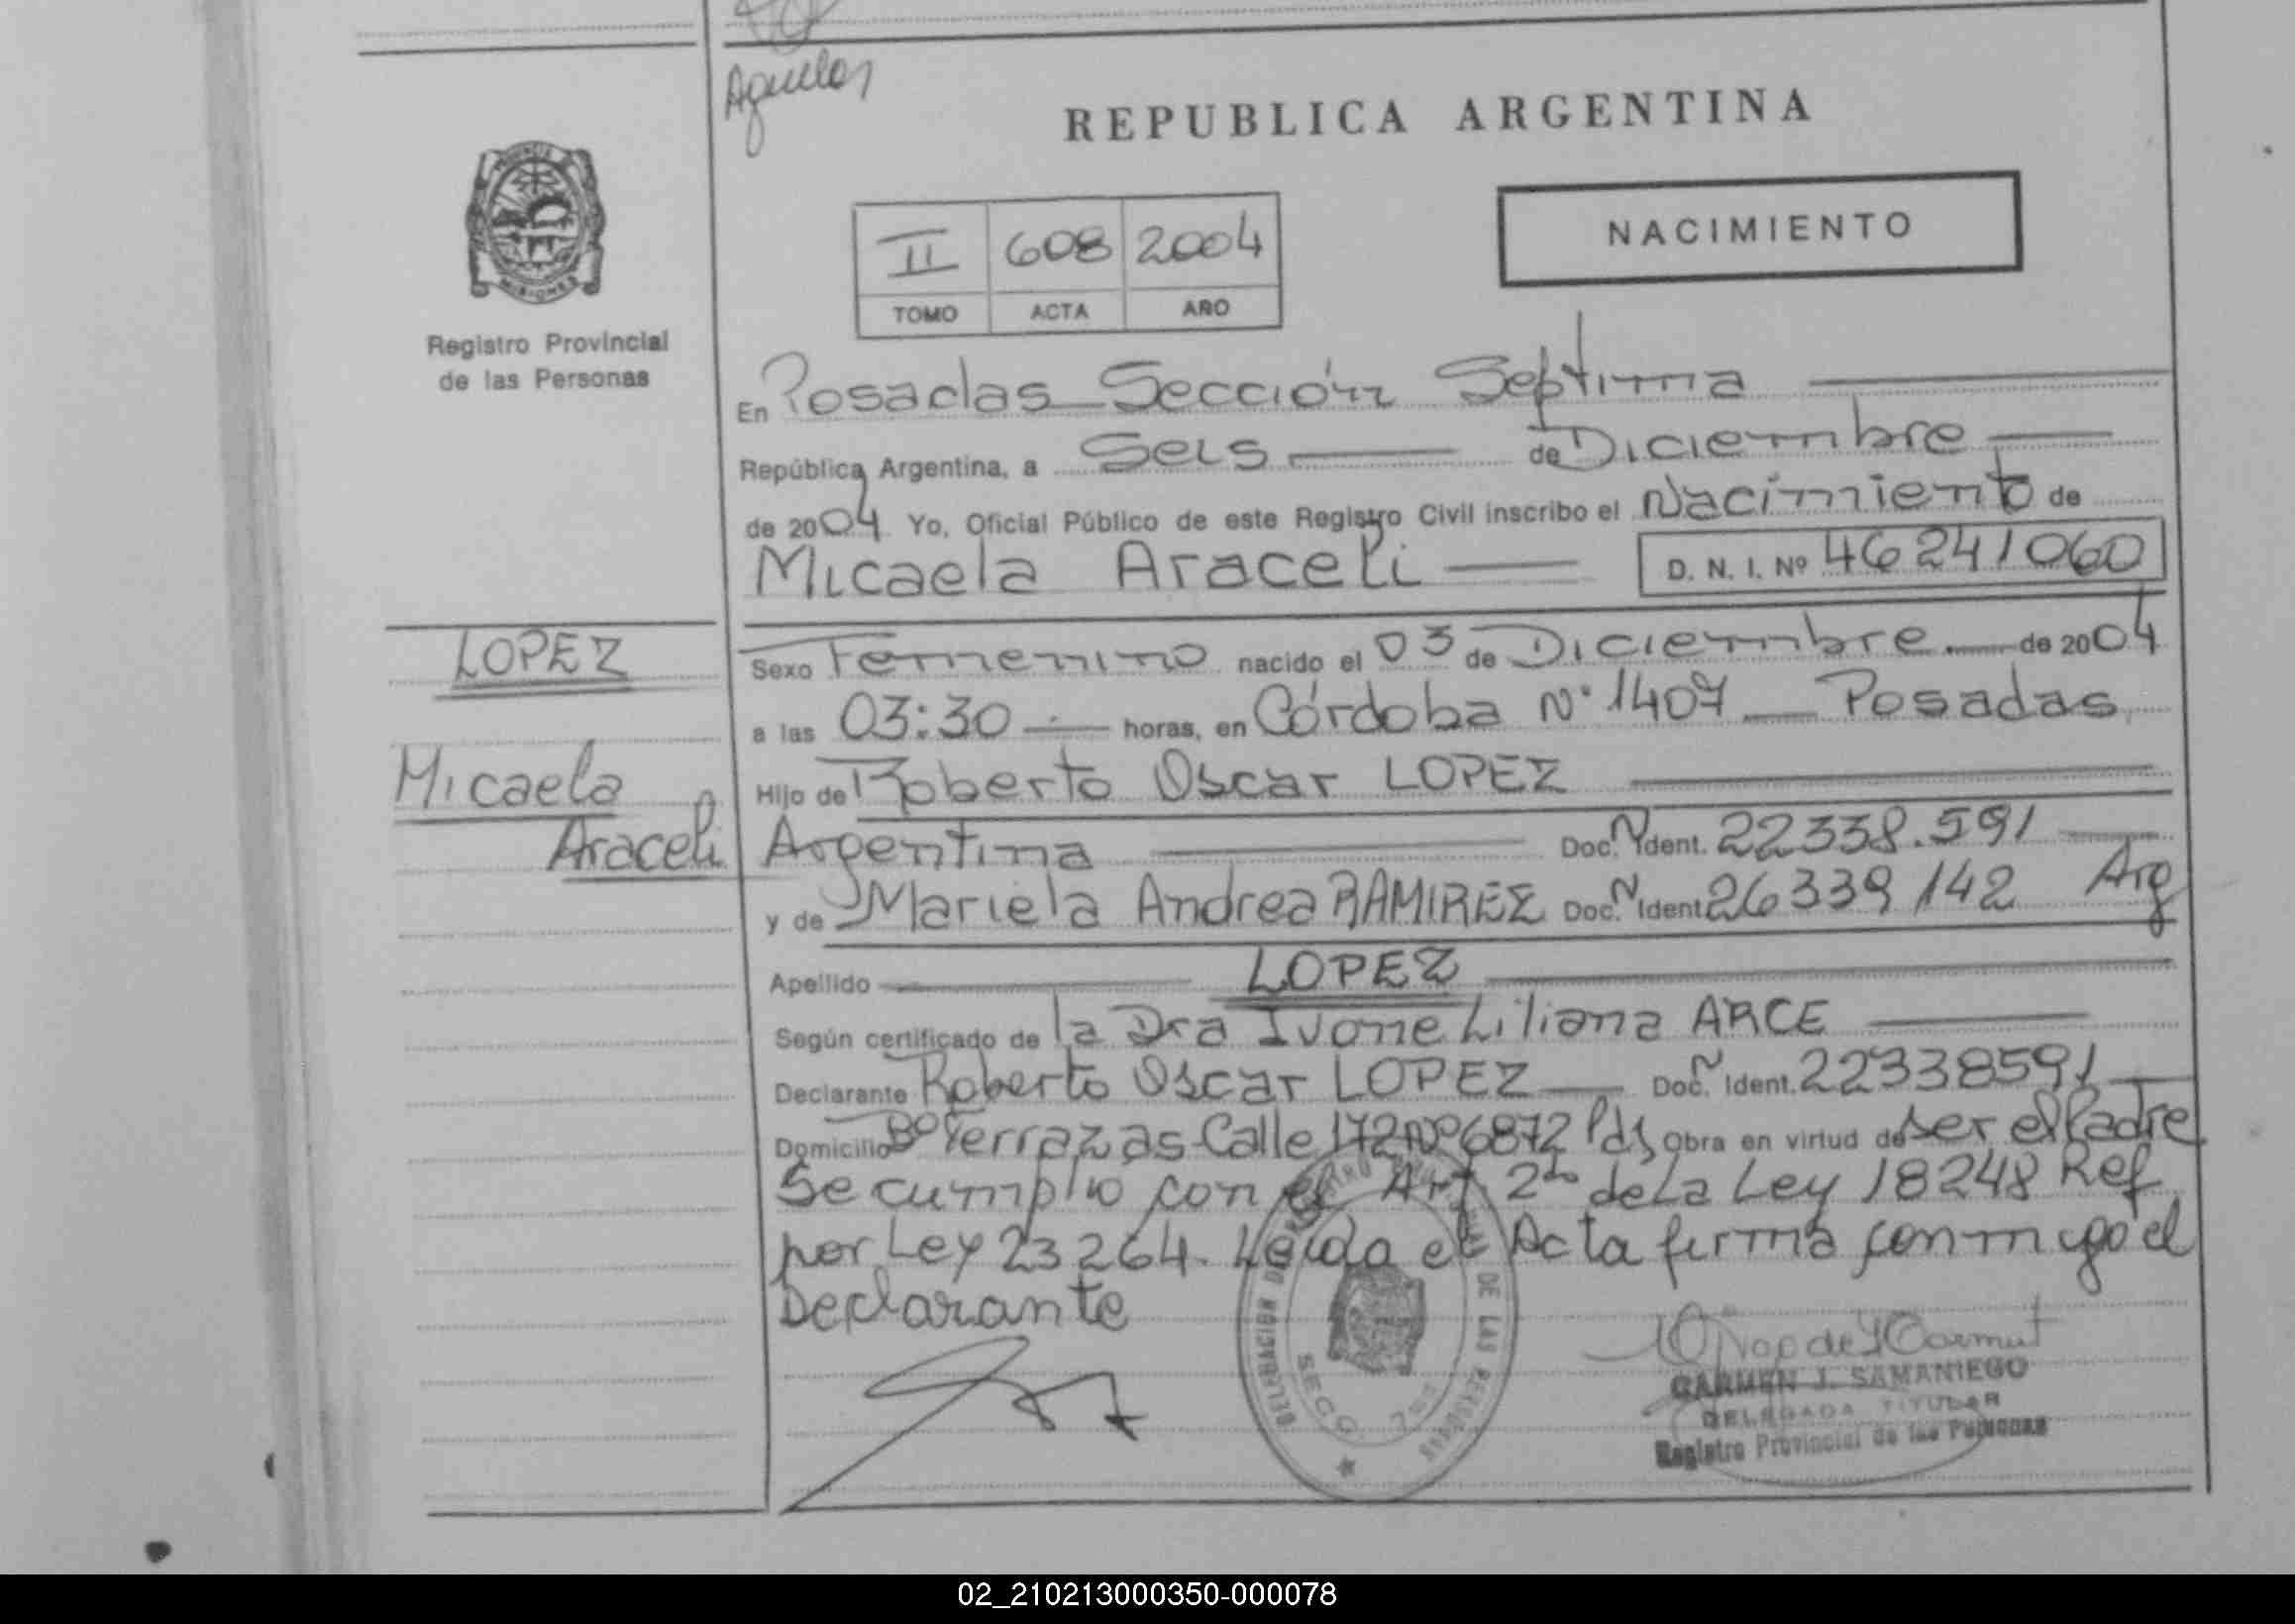 REPUBLICA ARGENTINA
NACIMIENTO
II 608 2004
TOMO ACTA AÑO
PROVINCIA
MISIONES
Registro Provincial
de las Personas
En Posadas Sección Septima
República Argentina, a Seis de Diciembre
de 2004 Yo, Oficial Público de este Registro Civil inscribo el Nacimiento de
Micaela Araceli D. N. I. Nº 46241060
LOPEZ
Micaela
Araceli
Sexo Femenino nacido el 03 de Diciembre de 2004
a las 03:30 horas, en Córdoba Nº 1407 Posadas
Hijo de Roberto Oscar LOPEZ
Argentina Doc. N Ident. 22338.591
y de Mariela Andrea RAMIREZ Doc. N Ident 26339142 Arg
Apellido LOPEZ
Según certificado de la Dra Ivone Liliana ARCE
Declarante Roberto Oscar LOPEZ Doc. N Ident. 22338591
Domicilio Bº Terrazas Calle 172 Nº 6872 Pds Obra en virtud de ser el Padre
Se cumplio con el Art 2do de la Ley 18248 Ref
por Ley 23264. Leida el Acta firma conmigo el
Declarante
DELEGACION DE LAS PERSONAS
SECC. 7
CARMEN J. SAMANIEGO
DELEGADA TITULAR
Registro Provincial de las Personas
02_210213000350-000078